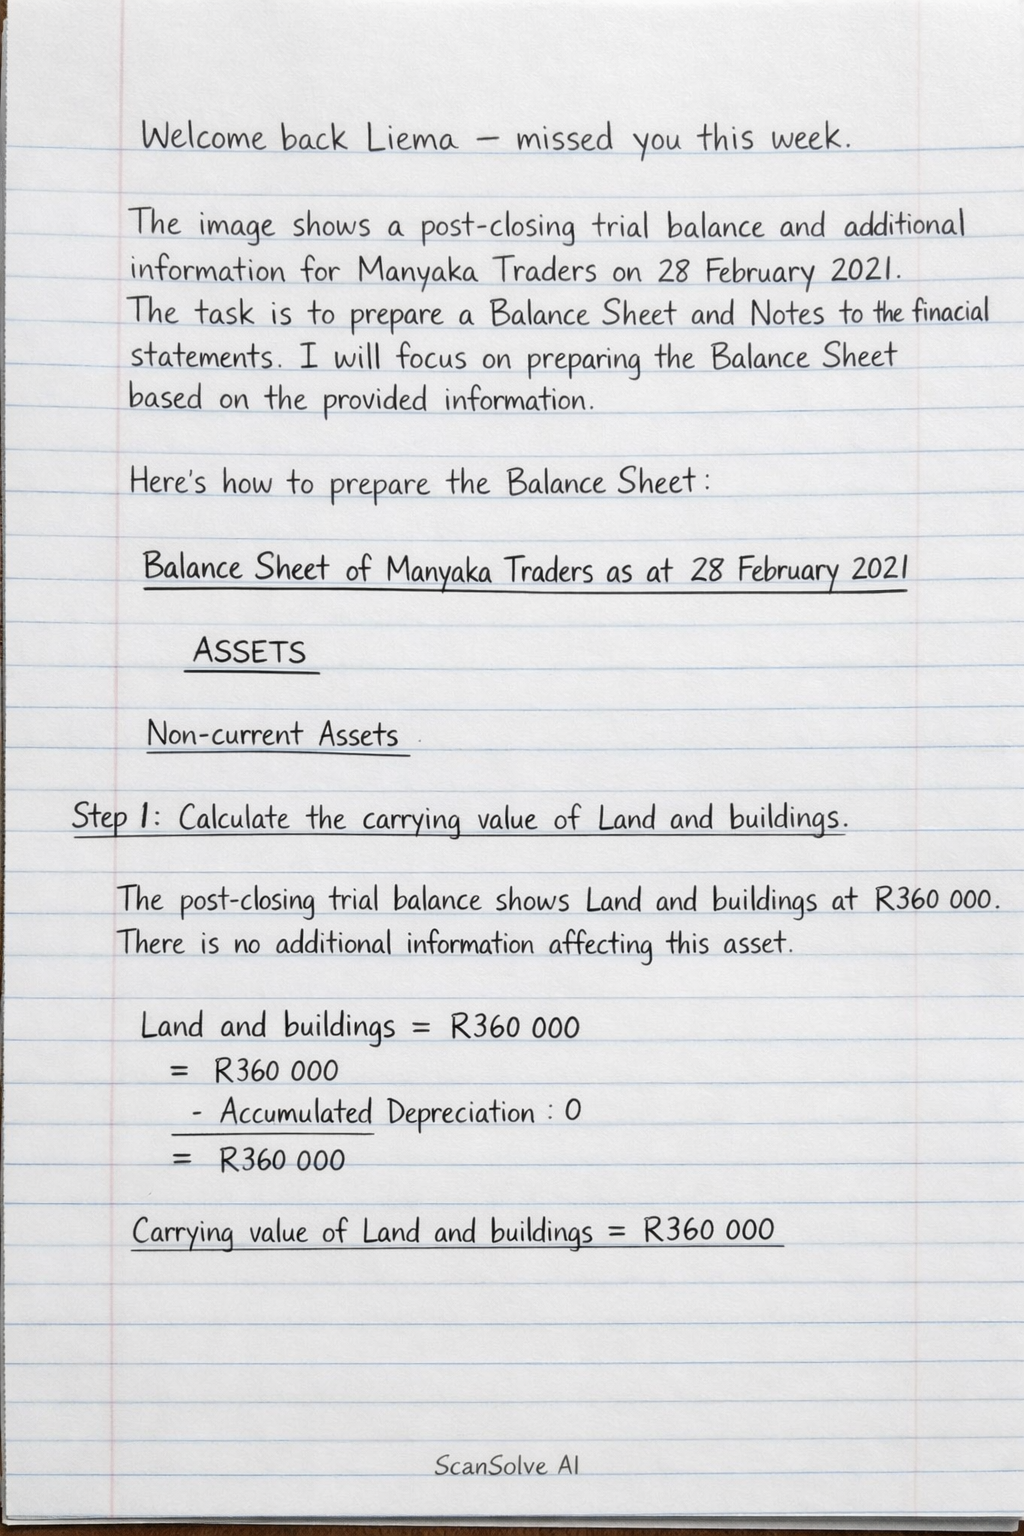 Welcome back Liema – missed you this week.
The image shows a post-closing trial balance and additional
information for Manyaka Traders on 28 February 2021.
The task is to prepare a Balance Sheet and Notes to the finacial
statements. I will focus on preparing the Balance Sheet
based on the provided information.
Here's how to prepare the Balance Sheet:
Balance Sheet of Manyaka Traders as at 28 February 2021
ASSETS
Non-current Assets
Step 1: Calculate the carrying value of Land and buildings.
The post-closing trial balance shows Land and buildings at R360 000.
There is no additional information affecting this asset.
Land and buildings = R360 000
= R360 000
- Accumulated Depreciation : 0
= R360 000
Carrying value of Land and buildings = R360 000
ScanSolve AI